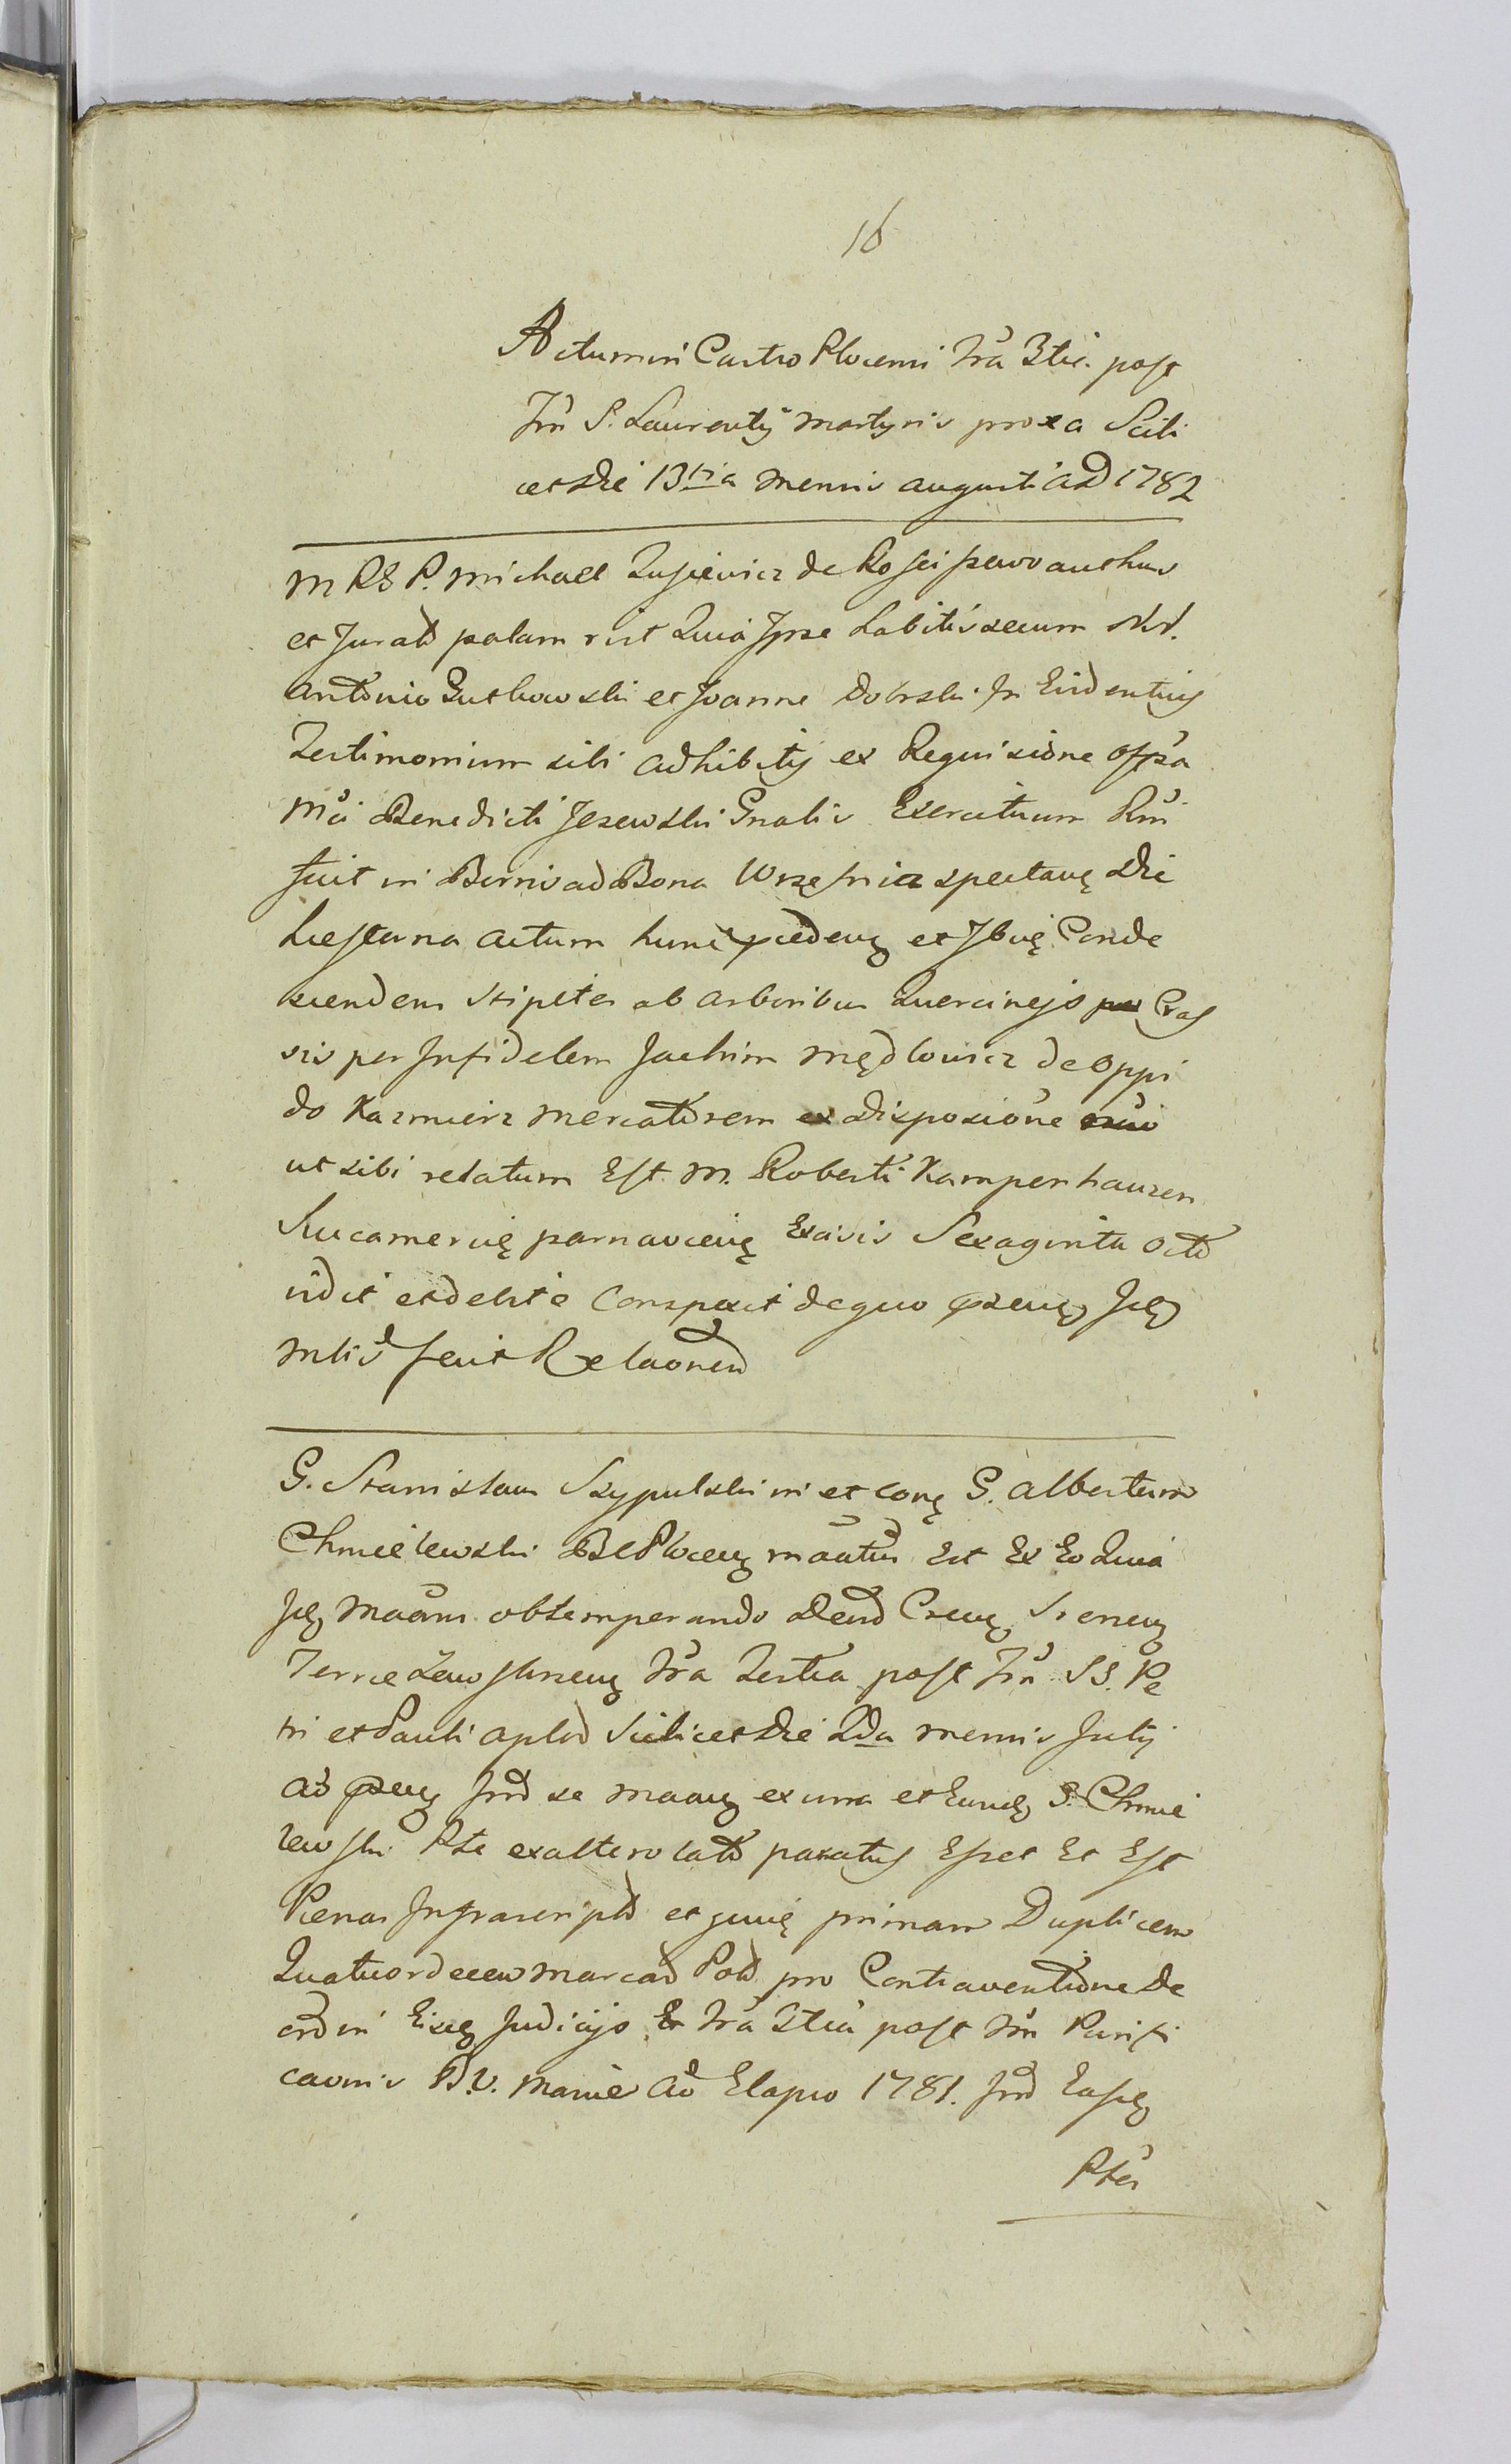 16
Actum in Castro Plocensi Fra 3tia post
Fm S. Laurentij Martyris proxa Scili
cet die 13tia Mensis augusti AD 1782
M RS P. Michael Zusiewicz de Rosciszewo authus
et Jurato palam rect Quia Ipse habitis secum NN.
Antonio Gutkowski et Joanne Dobrski In Evidentius
Testimonium sibi adhibitis ex Requisione offsa
Mci Benedicti Jezewski Gnalis Exercituum Rni
fuit in Borris ad Bona Wrzesnia spectane die
hesterna actum hunc pcedeng et Ibque Conde
scendens stipites ab arboribus Quercinejs Cras
sis per Infidelem Jachim Mędlowicz de Oppi
do Kazmierz Mercatorem ex disposione
ut sibi relatum Est M. Roberti Kampenhauzen
Succamerię parnaviens Excisis Sexaginta octo
vidit et debite conspexit de quo psens Jdq
Mlis fecit Relaonem
G. Stanislaus Szypulski in et conę G. Albertum
Chmielewski BCPlocens maatus Est Ex Eo Quia
Jdq Maam obtemperando Decro Crens Srenens
Terrae Zawskrzens Fra Tertia post Fm SS. Pe
tri et Pauli Aplor Scilicet die 2da mensis Julij
AD psens Int se Maans ex una et Eundq G. Chmie
lewski Pte ex altero lato paratus Esset Et Est
Penas Infrascriptas et quidę primam Duplicem
Quatuordecem Marcar Pol pro Contraventione De
cro in Eisdq Judicijs Fra 3tia post Fm Purifi
caonis B.V. Mariae AD Elapso 1781. Int Easdq
Ptes